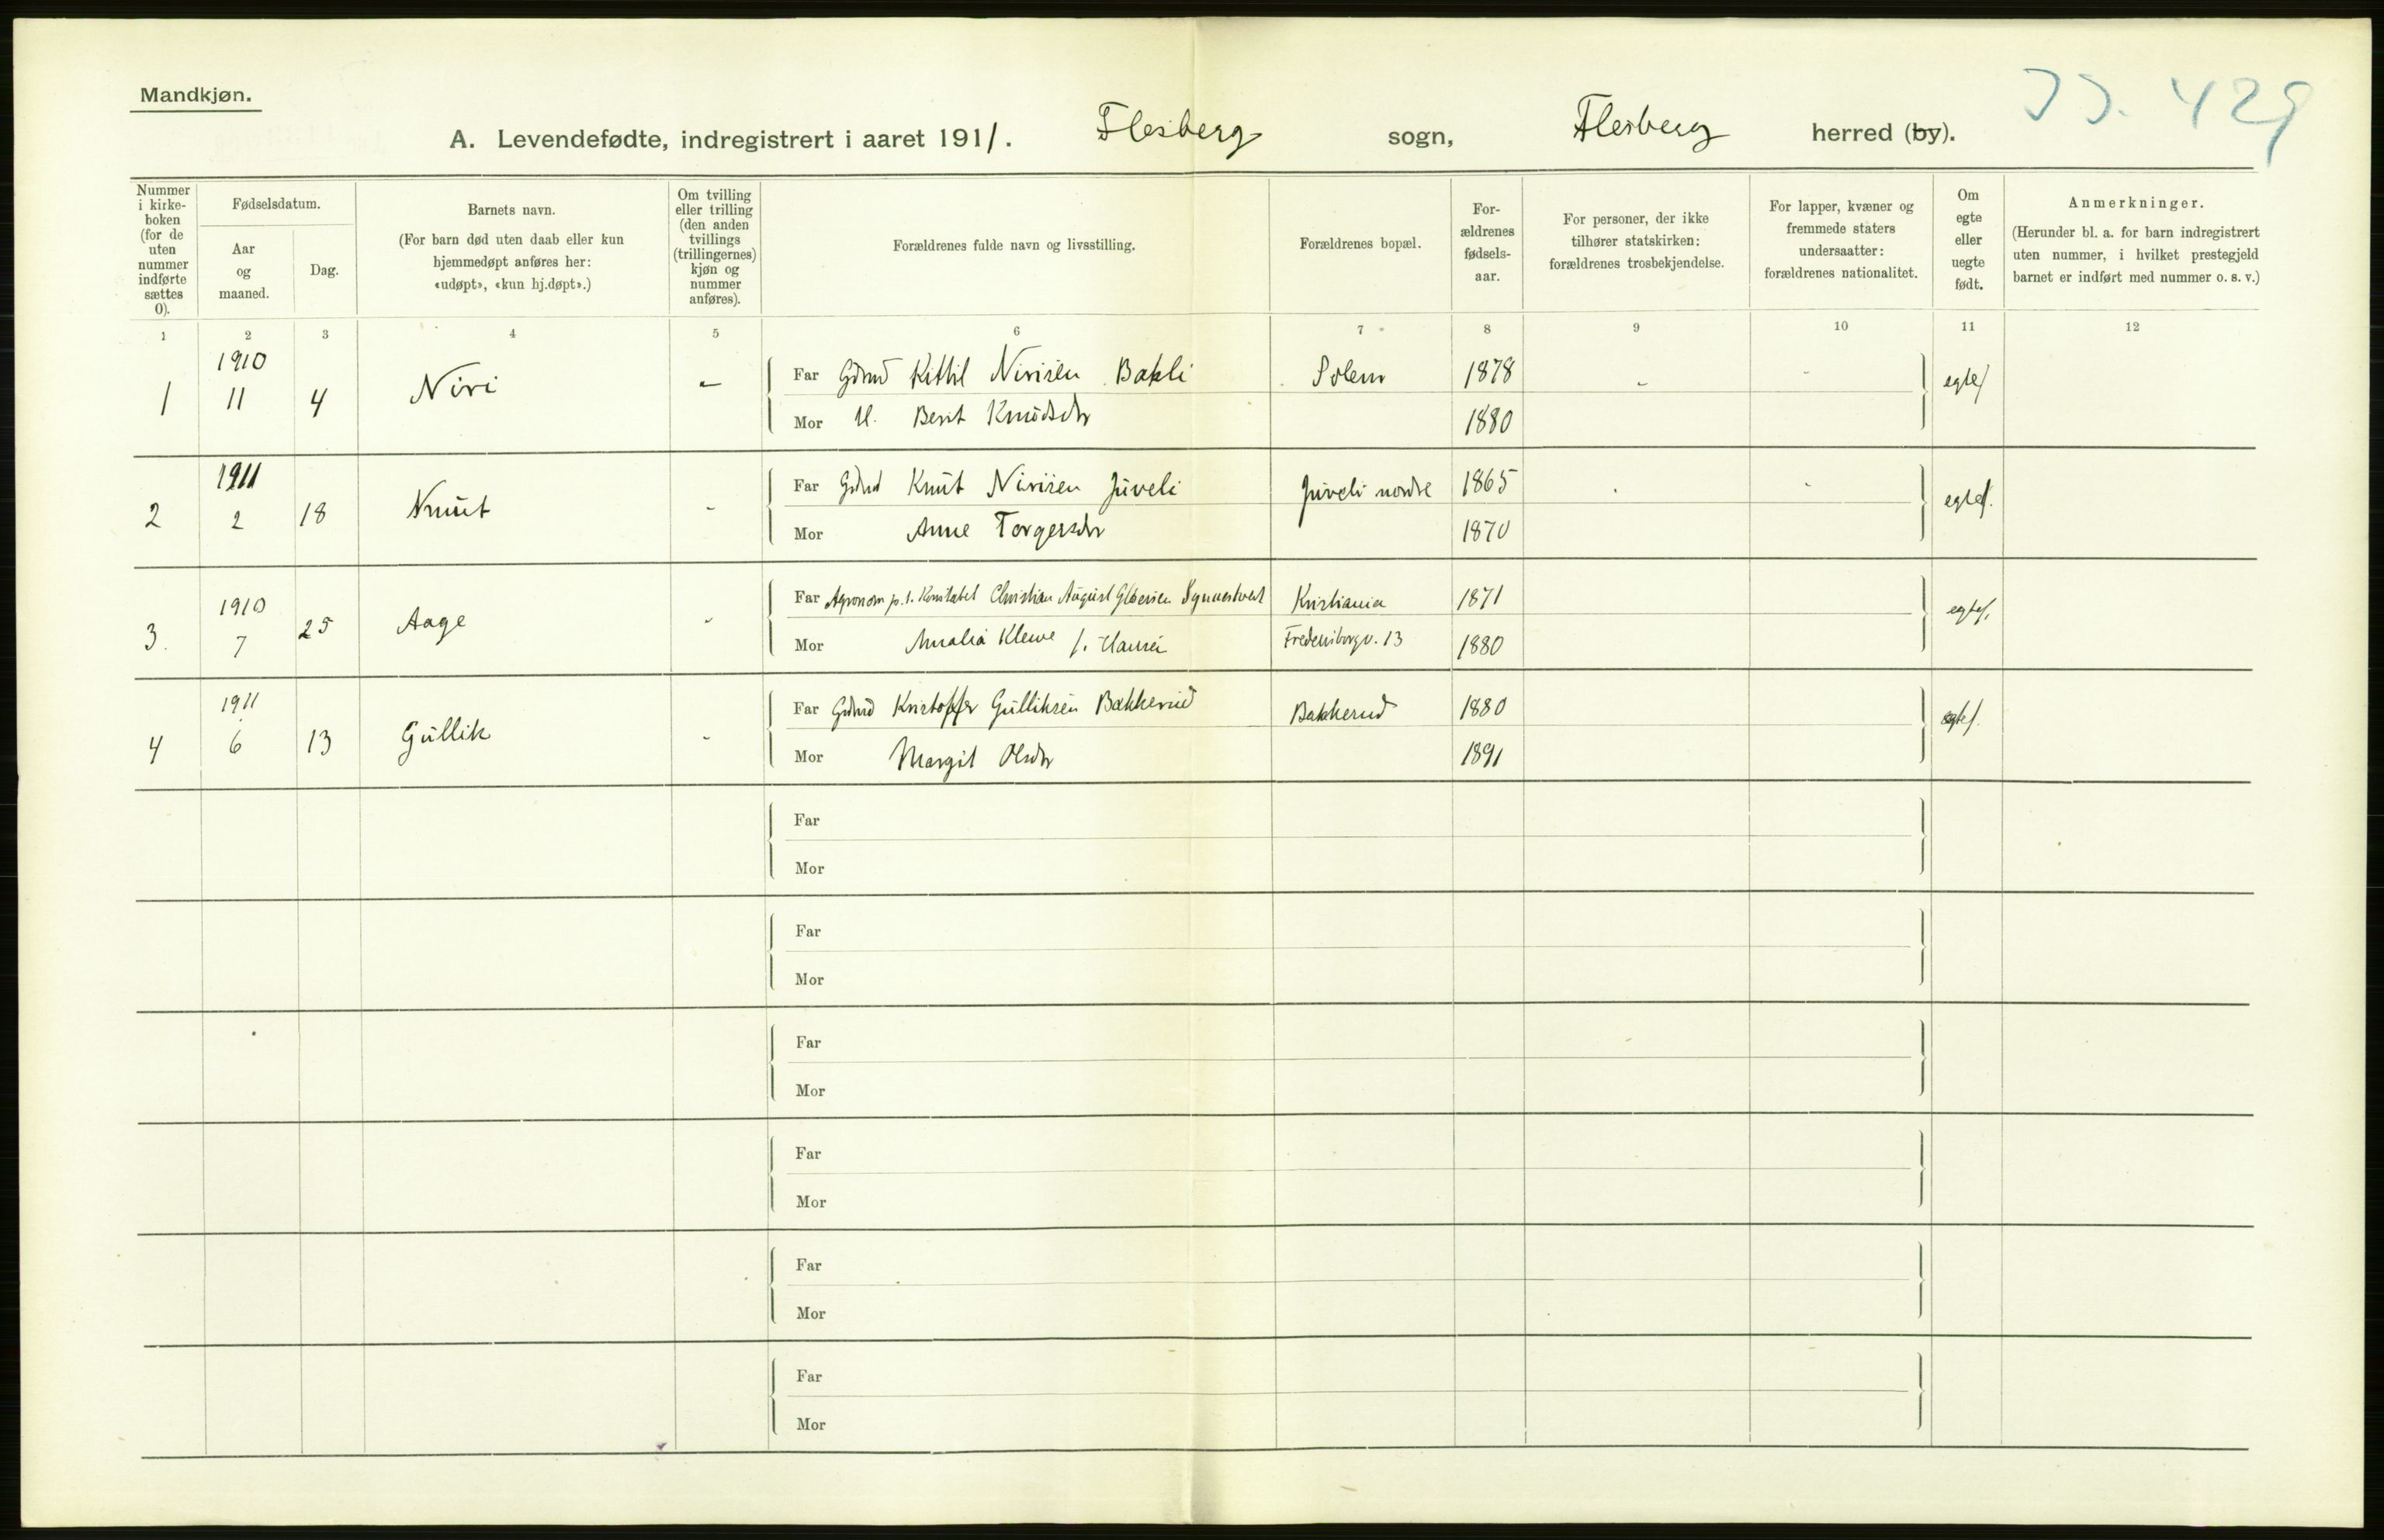 Mandkjøn.
JJ. 429
A. Levendefødte, indregistrert i aaret 1911. Flesberg sogn, Flesberg herred (by).
Nummer i kirke-boken (for de uten nummer indførte sættes 0).
Fødselsdatum.
Aar og maaned.
Dag.
Barnets navn.
(For barn død uten daab eller kun hjemmedøpt anføres her: «udøpt», «kun hj.døpt».)
Om tvilling eller trilling (den anden tvillings (trillingernes) kjøn og nummer anføres).
Forældrenes fulde navn og livsstilling.
Forældrenes bopæl.
For-ældrenes fødsels-aar.
For personer, der ikke tilhører statskirken: forældrenes trosbekjendelse.
For lapper, kvæner og fremmede staters undersaatter: forældrenes nationalitet.
Om egte eller uegte født.
Anmerkninger.
(Herunder bl. a. for barn indregistrert uten nummer, i hvilket prestegjeld barnet er indført med nummer o. s. v.)
1 2 3 4 5 6 7 8 9 10 11 12
1 1910 11 4 Niri - Far Gdmd Kittil Nirisen Bakli Solem 1878 - - egtef
Mor H. Berit Knudsdtr 1880
2 1911 2 18 Knut - Far Gdmd Knut Nirisen Juveli Juveli nordre 1865 egtef.
Mor Anne Torgersdtr 1870
3. 1910 7 25 Aage - Far Agronom p.t. Konstabel Christian August Synnestvedt Kristiania 1871 egtef.
Mor Amalia f. Hansen Fredensborgv. 13 1880
4 1911 6 13 Gullik - Far Gdmd Kristoffer Gulliksen Bakkerud Bakkerud 1880 egtef.
Mor Margit Olsdtr 1891
Far
Mor
Far
Mor
Far
Mor
Far
Mor
Far
Mor
Far
Mor